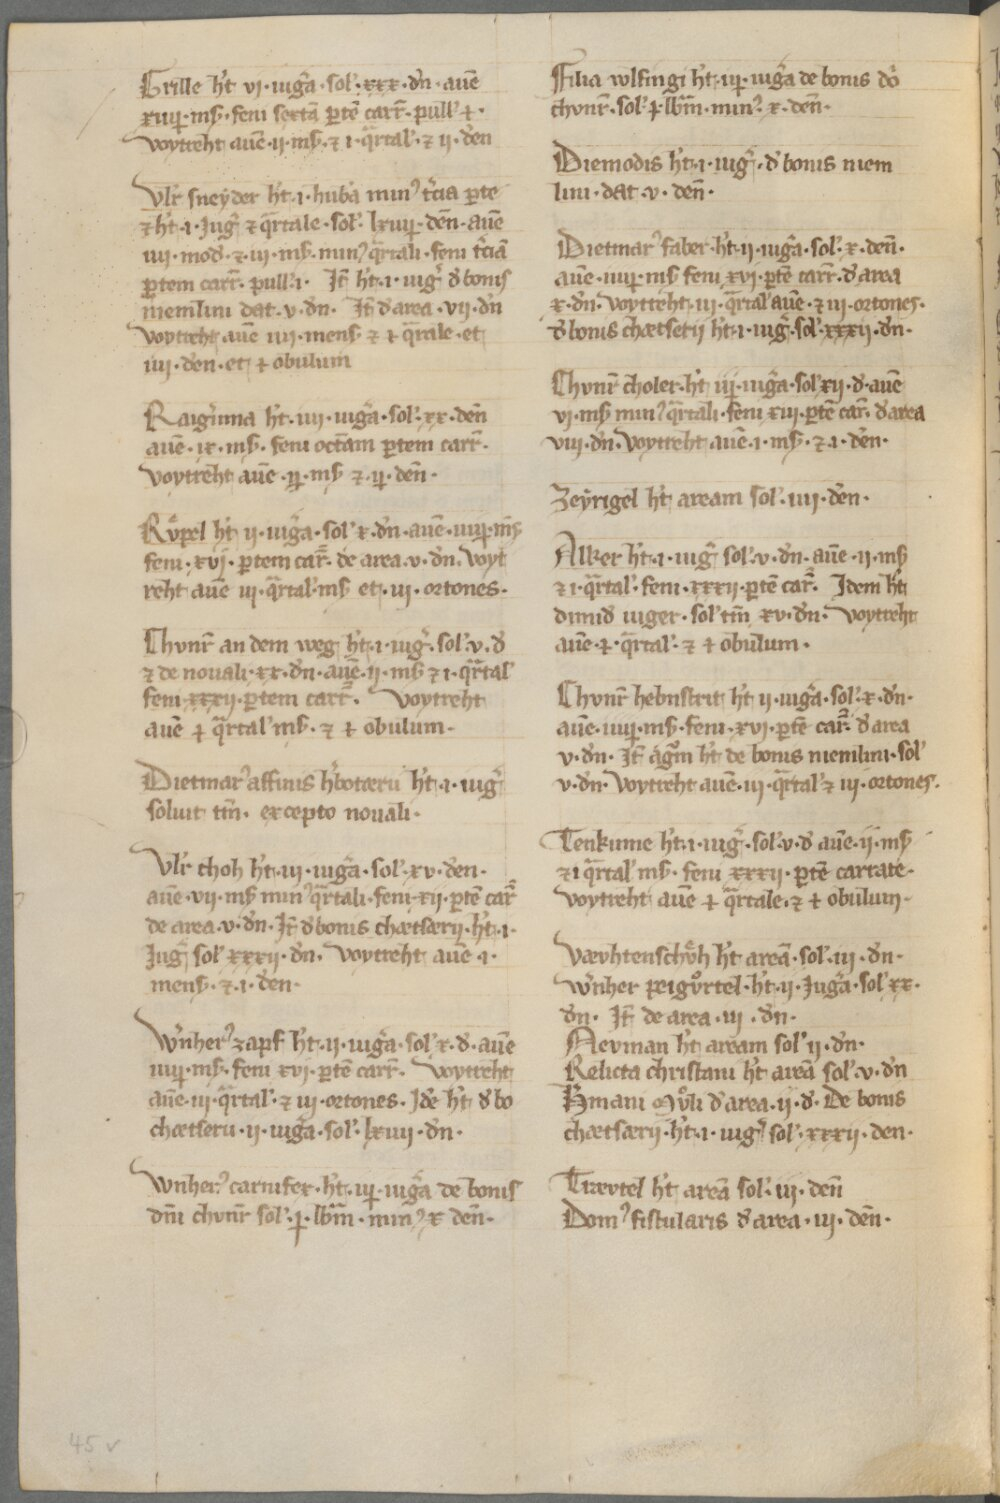 Grille h̄t vi · iug̃a · sol᷒ · xxx · d̄n · auē
xiiij · ms̄ · feni sextā p̄tē carr̄ · pull᷒ ɫ ·
voytreht auē · ii · ms̄ · ⁊ i · q̃rtal᷒ · ⁊ ii · d̄en
Vlr̄ sneyder h̄t · i · huba min᷒ t̄cia p̄te
⁊ h̄t · i · Jug̃ ⁊ q̃rtale · sol᷒ · lxiiij · dēn · auē
iiii · mod᷒ · ⁊ · iii · ms̄ · min᷒ q̃rtali · feni t̄ciā
p̄tem carr̄ · pull᷒ · i · It̄ h̄t · i · iug̃ d̄ bonis
niemlini dat · v · d̄n · It̄ d̄ area · vii · d̄n
voytreht auē iiii · mens̄ · ⁊ ɫ q̃rtale · et
iiii · d̄en · et ɫ obulum
Raig̃inna h̄t · iiii · iug̃a · sol᷒ · xx · dēn
auē · ix · ms̄ · feni octām p̄tem carr̄ ·
voytreht auē · ij · ms̄ ⁊ · ij · dēn ·
Rv̊pel h̄t ii · iug̃a · sol᷒ x · d̄n · auē · iiiij · ms̄
feni · xvi · p̄tem car̄r · de area · v · d̄n · voyt
reht auē iii · q̃rtal᷒ · ms̄ et · iii · ortones ·
Chvnr̄ an dem weg h̄t · i · iug̃ · sol᷒ · v · d̄
⁊ de nouali · xx · d̄n · auē · ii · ms̄ ⁊ i · q̃rtal᷒
feni xxxii · p̄tem carr̄ · voytreht
auē ɫ q̃rtal᷒ ms̄ · ⁊ ɫ obulum ·
Dietmar᷒ affinis h̄botærii h̄t · i · iug̃
soluit tm̄ · excepto nouali ·
Vlr̄ choh h̄t · iii · iug̃a · sol᷒ · xv · d̄en ·
auē · vii · ms̄ min᷒ q̃rtali · feni · xii · p̄tē car̄r
de area · v · d̄n · It̄ d̄ bonis chætsærii · h̄t · i ·
Jug̃ sol xxxii · d̄n · voytreht auē · i ·
mens̄ · ⁊ · i · d̄en ·
Wn̄her᷒ zapf h̄t · ii · iug̃a · sol᷒ · x · d̄ · auē
iiiij · ms̄ · feni xvi · p̄tē carr̄ · voytreht
auē · iii · q̃rtal᷒ · ⁊ iii · ortones · Idē h̄t d̄ bo
chætserii · ii · iug̃a · sol᷒ · lxiiii · d̄n ·
Wn̄her᷒ carnifex · h̄t · iij · iug̃a de bonis
dn̄i chvnr̄ sol᷒ · j · lb̄m · min᷒ x dēn ·
Filia wlfingi h̄t · iij · iug̃a de bonis do᷒
chvnr̄ · sol᷒ ɫ lb̄m · min᷒ · x · dēn ·
Diemodis h̄t · i · iug̃ · d̄ bonis niem
lini · dat · v · dēn ·
Dietmar᷒ faber · h̄t · ii · iug̃a · sol᷒ · x · dēn ·
auē · iiiij · ms̄ feni xvi · p̄tē carr̄ · d̄ area
x · d̄n · voytreht · iii · q̃rtal᷒ auē · ⁊ iii · ortones ·
d̄ bonis chætserij h̄t · i · iug̃ · sol᷒ · xxxii · d̄n ·
Chvnr̄ choler · h̄t iij · iug̃a · sol᷒ xii · d̄ · auē
vi · ms̄ min᷒ q̃rtali · feni xiii · p̄tē car̄ · d̄ area
viii · d̄n · voytreht auē · i · ms̄ · ⁊ · i · d̄en ·
Zeyrigel h̄t aream sol᷒ · iiii · d̄en ·
Alker h̄t · i · iug̃ sol᷒ · v · d̄n · auē · ii · ms̄
⁊ i · q̃rtal᷒ · feni · xxxii · p̄tē car̄ · Idem h̄t
dimid᷒ iuger · sol᷒ tm̄ xv · d̄n · voytreht
auē · ɫ · q̃rtal᷒ · ⁊ ɫ obulum ·
Chvnr̄ hebnstrit h̄t ii · iug̃a · sol᷒ · x · d̄n ·
auē · iiiij · ms̄ · feni · xvi · p̄tē car̄ · d̄ area
v · d̄n · It̄ ag̃m h̄t de bonis niemlini · sol᷒
v · d̄n · voytreht auē · iii · q̃rtal᷒ ⁊ iii · ortones ·
Tenkume h̄t · i · iug̃ · sol᷒ · v · d̄ auē · ii · ms̄
⁊ i q̃rtal᷒ ms̄ · feni xxxii · p̄tē carrate ·
voytreht auē ɫ q̃rtale · ⁊ ɫ obulum ·
Vævhtenschv̊h h̄t areā · sol᷒ · iii · d̄n ·
Wn̄her peigv̊rtel · h̄t · ii · Jug̃a · sol xx ·
d̄n · It̄ de area · iii · d̄n ·
Nevman h̄t aream sol᷒ ii · d̄n ·
Relicta christani h̄t areā sol᷒ · v · d̄n
H̄mani mv̊li d̄ area · ii · d̄ · De bonis
chætsærij · h̄t · i · iug̃ sol᷒ · xxxii · den ·
Trævtel h̄t areā sol᷒ · iii · dēn
Dom᷒ fistularis d̄ area · iii · dēn ·
45 v